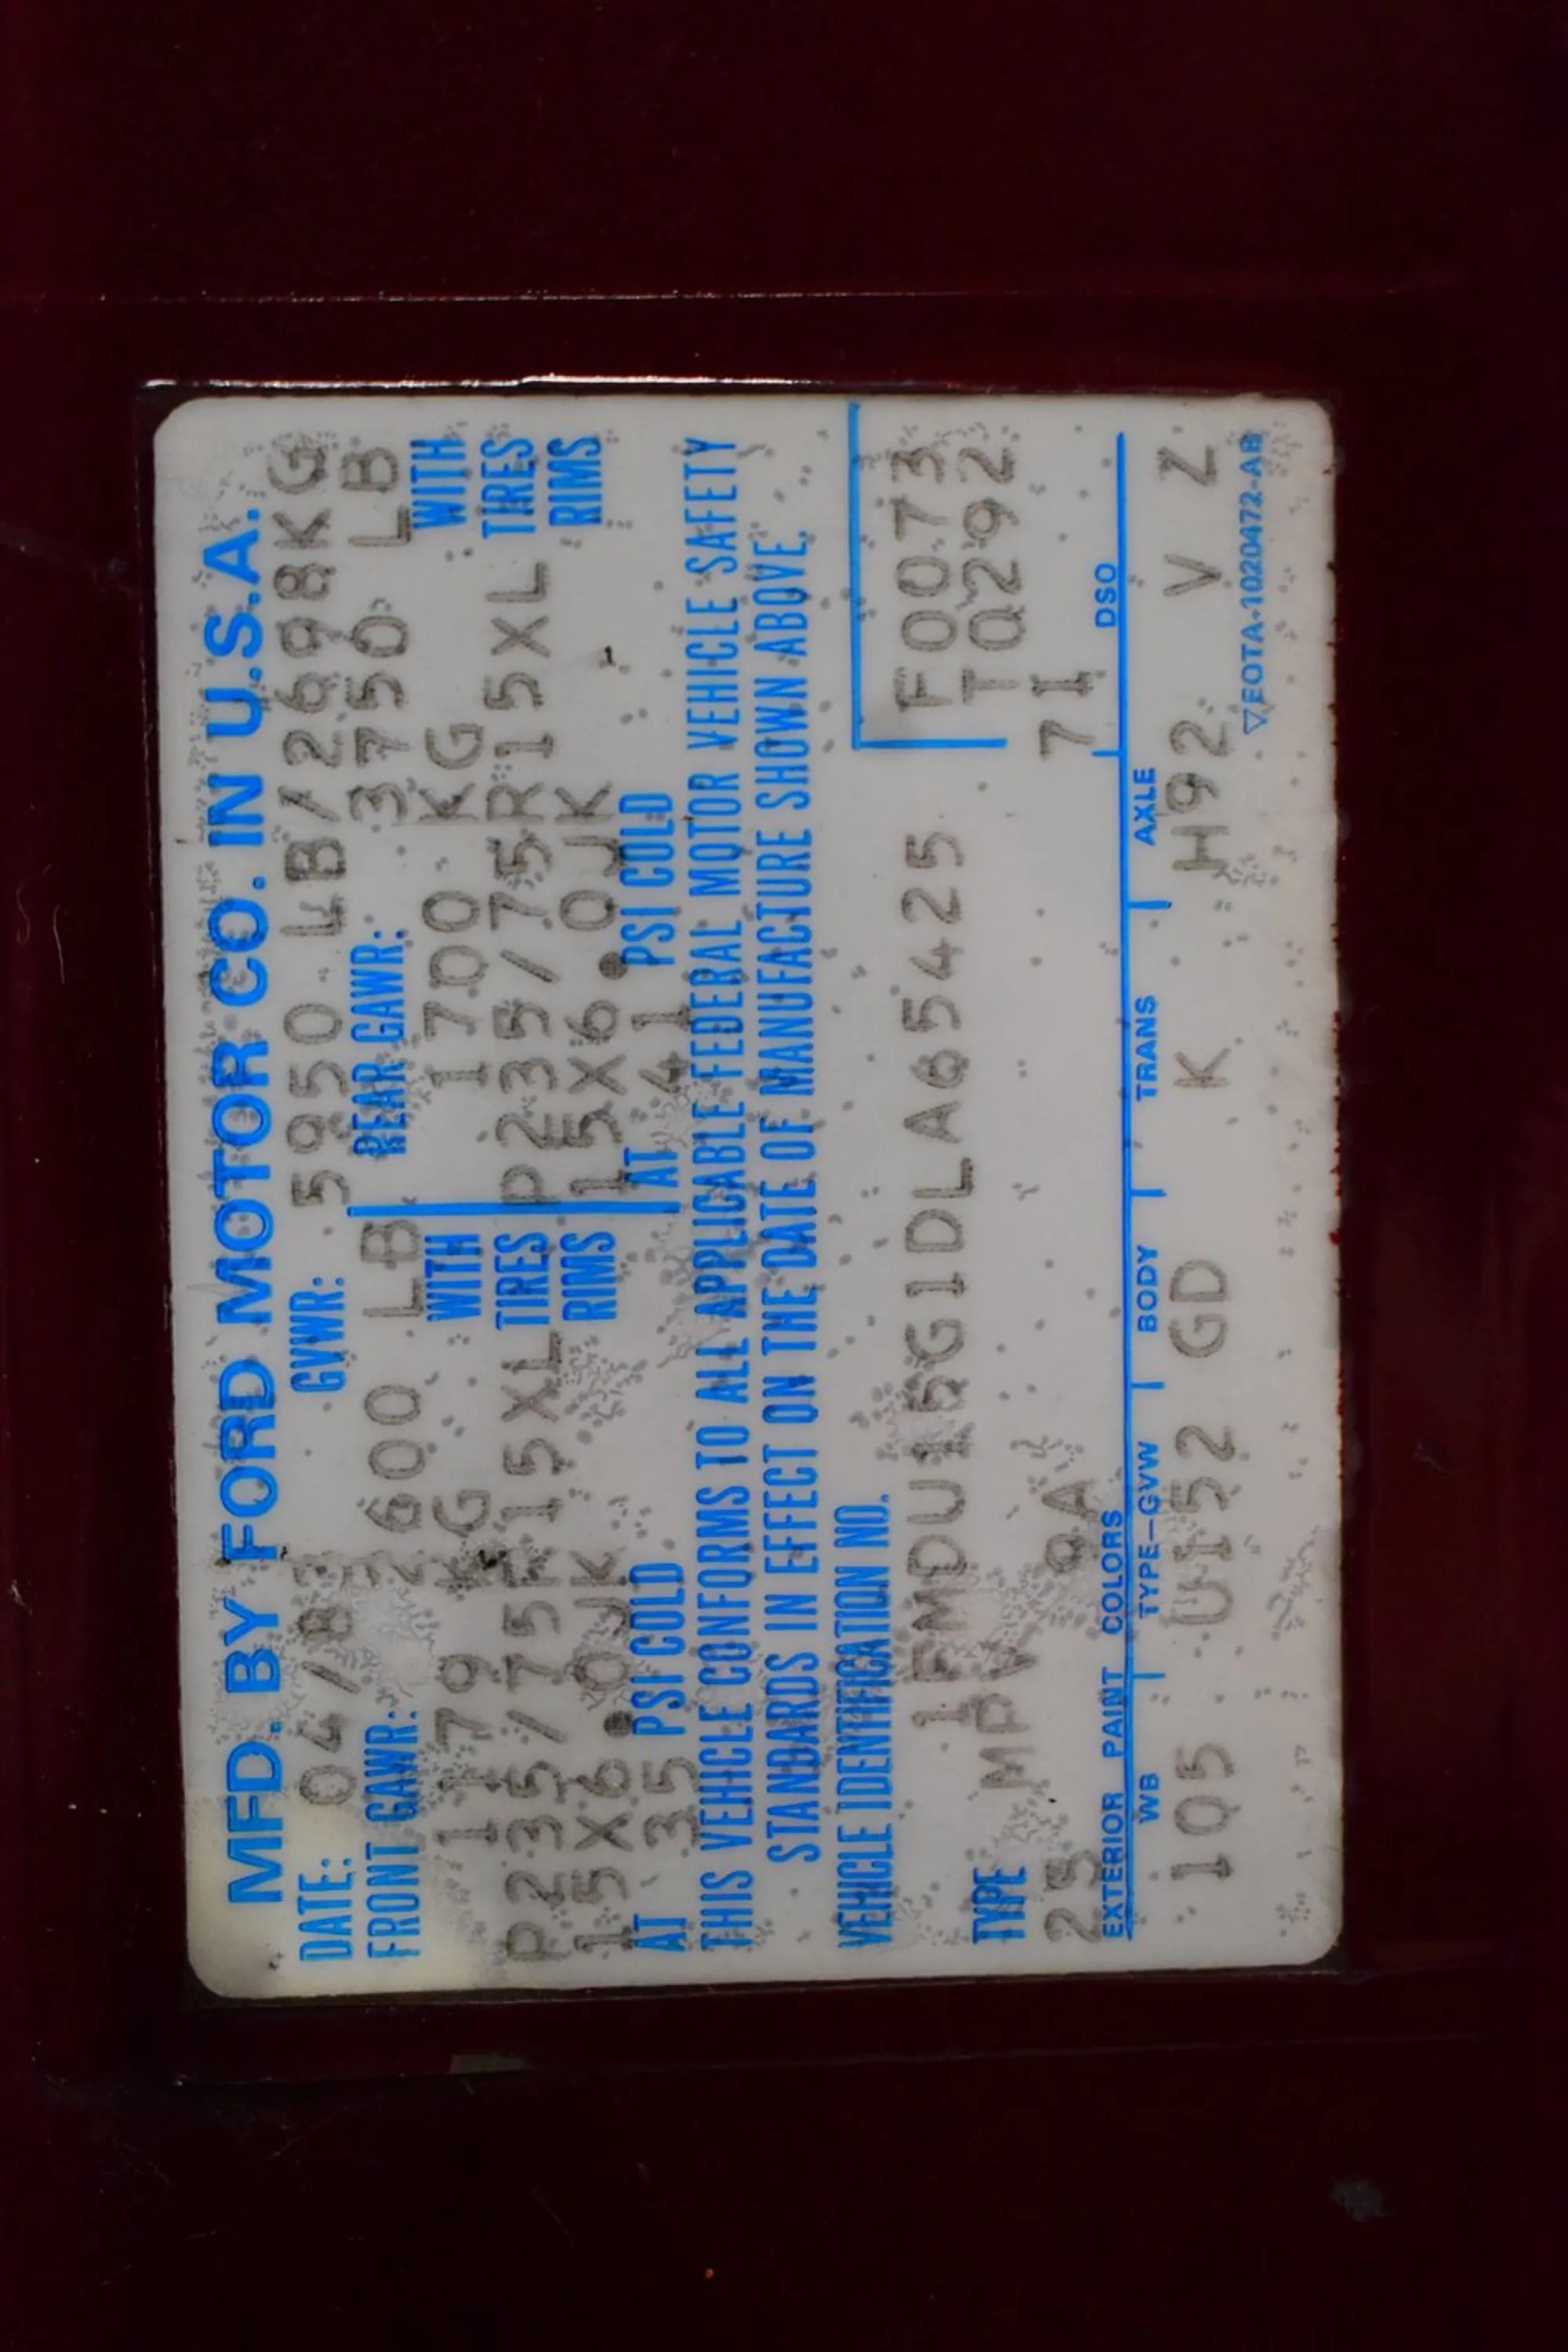 MFD. BY FORD MOTOR CO. IN U.S.A.
DATE: 04/83 GVWR: 5950 LB/2698KG
FRONT GAWR: 2600 LB REAR GAWR: 3750 LB
1179 KG WITH 1700 KG WITH
P235/75R15XL TIRES P235/75R15XL TIRES
15X6.0JK RIMS 15X6.0JK RIMS
AT 35 PSI COLD AT 41 PSI COLD
THIS VEHICLE CONFORMS TO ALL APPLICABLE FEDERAL MOTOR VEHICLE SAFETY
STANDARDS IN EFFECT ON THE DATE OF MANUFACTURE SHOWN ABOVE.
VEHICLE IDENTIFICATION NO.
1FMDU15G1DLA65425 F0073
TYPE MPV TQ292
25 9A 7I
EXTERIOR PAINT COLORS DSO
WB TYPE-GVW BODY TRANS AXLE
105 U152 GD K H92 V Z
▽EOTA-1020472-AB